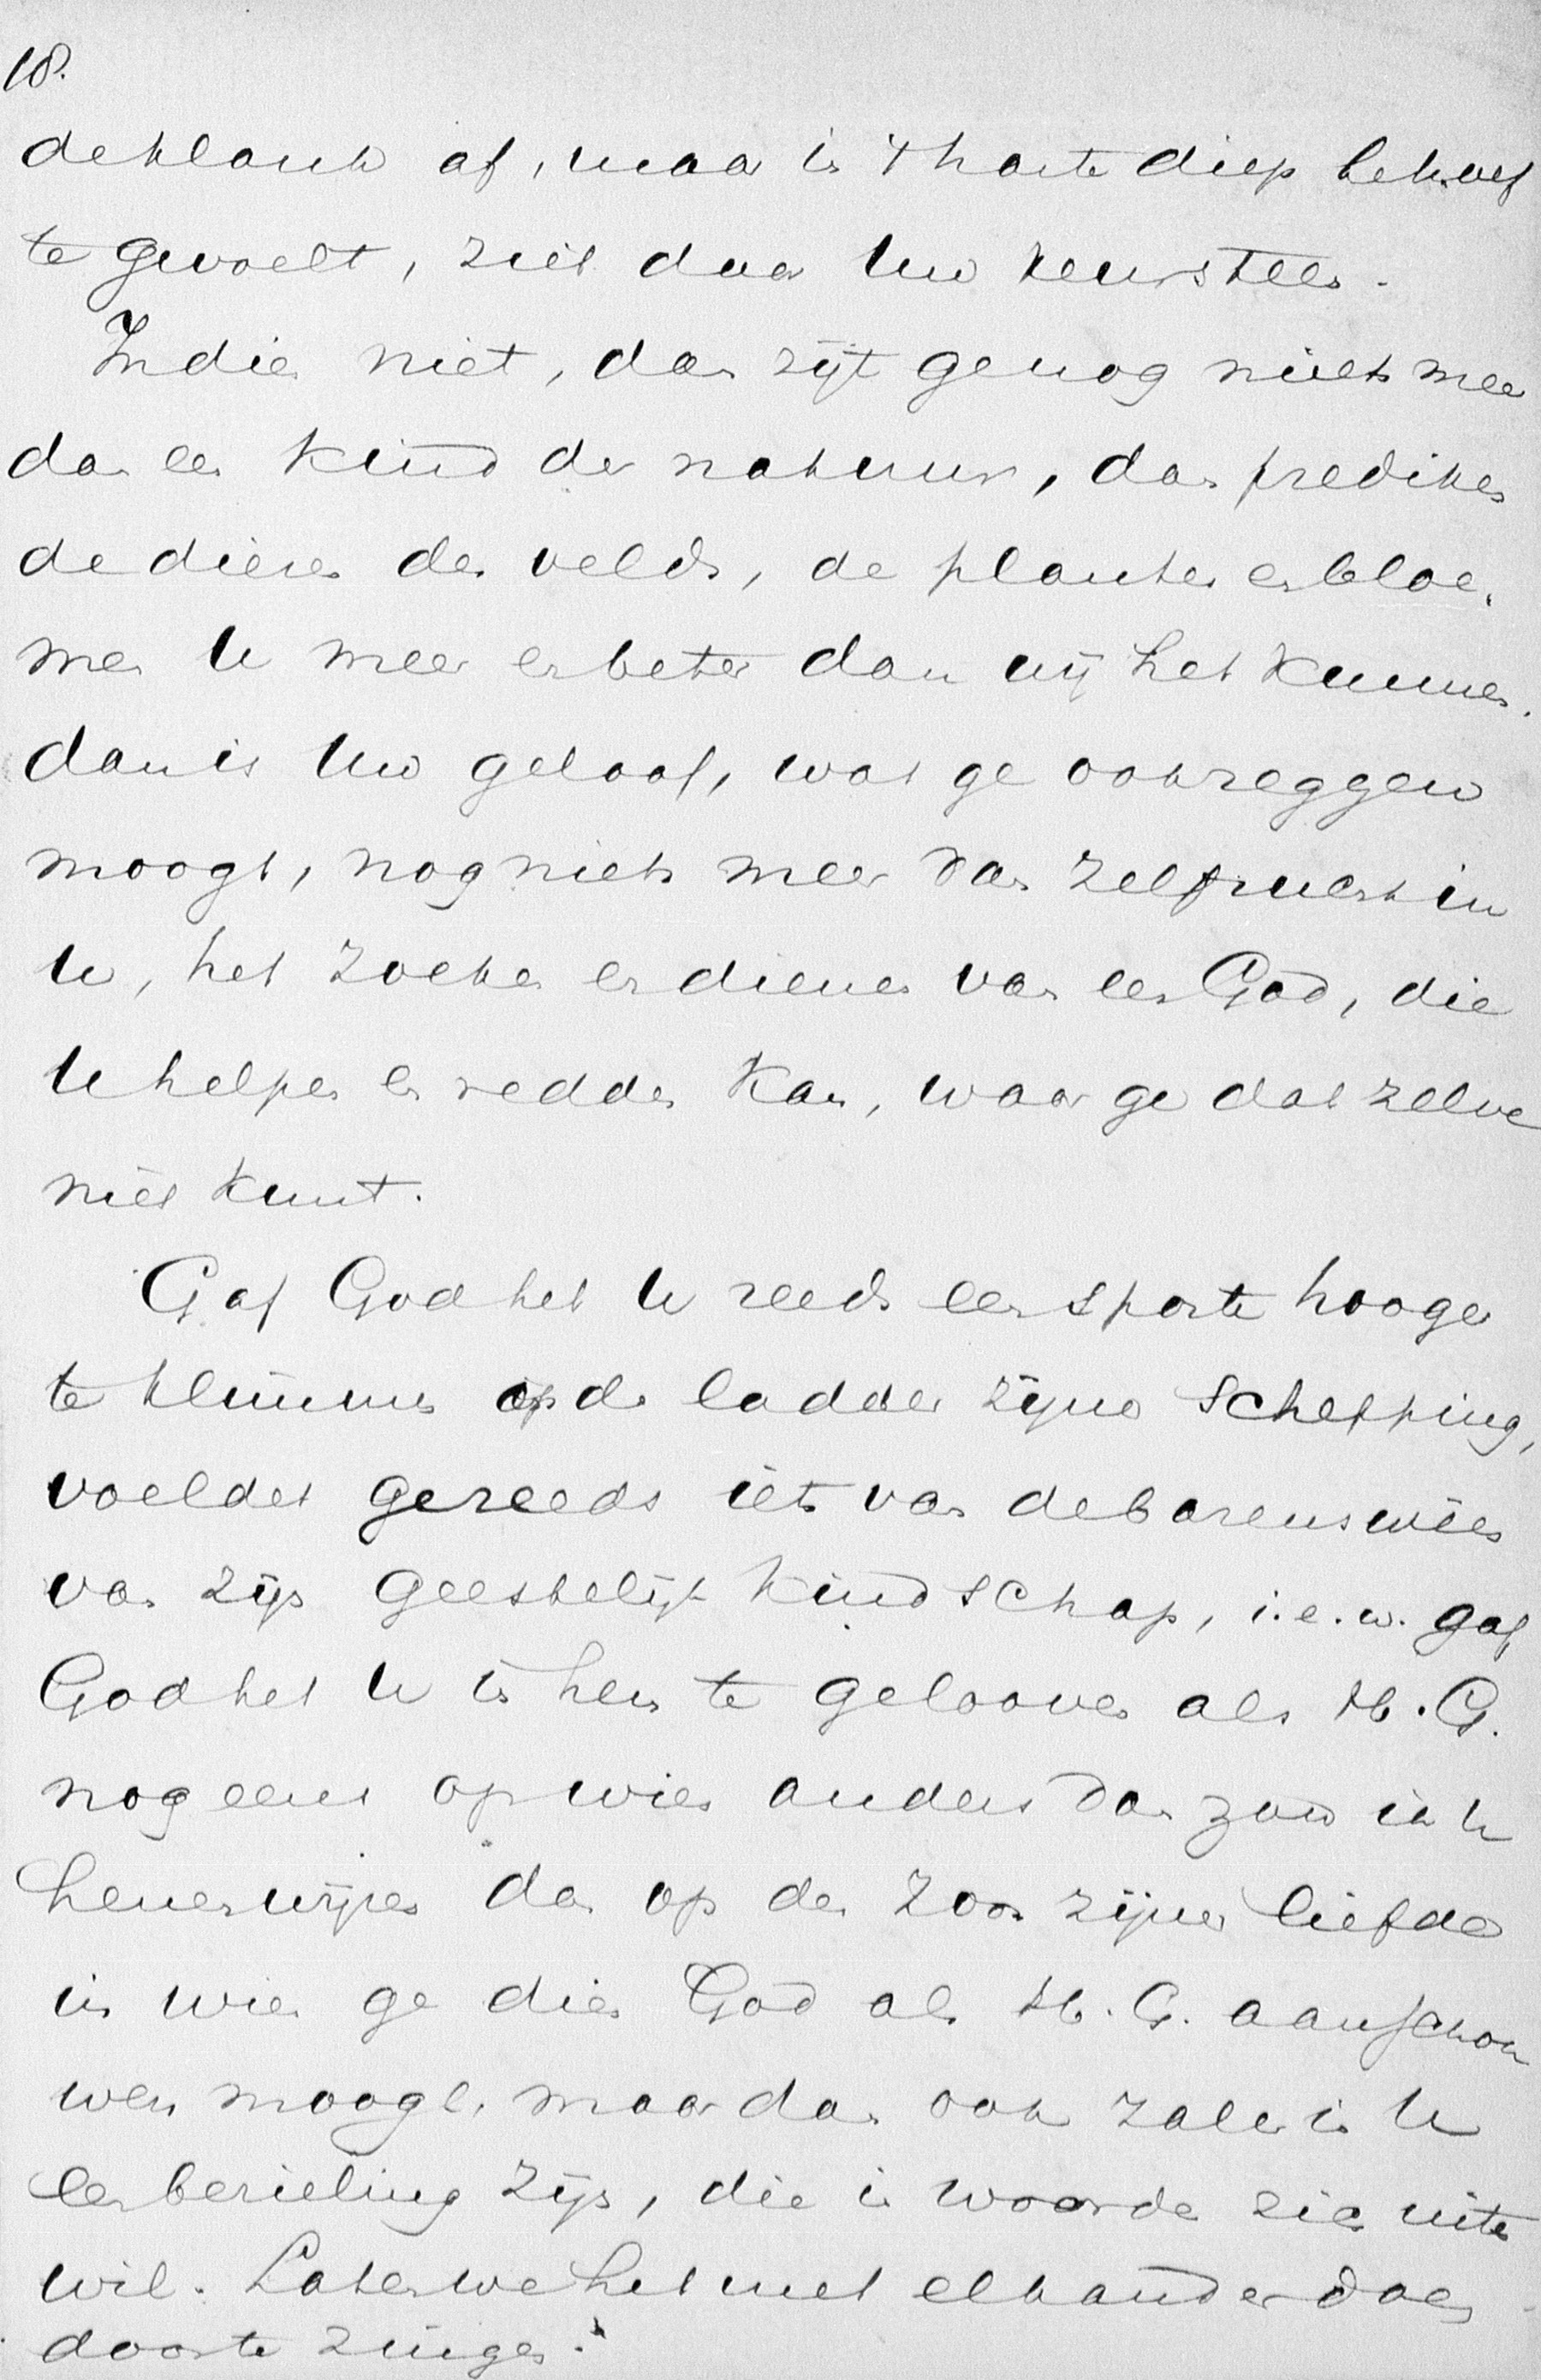 18.
de klank af, maar in 't harte diep behoef
te gevoelt, ziet daar Uw keursteen.
Indien niet, dan zijt ge nog niets meer
dan een kind der natuur, dan prediken
de dieren des velds, de planten en bloe-
men U meer en beter dan wij het kunnen.
dan is Uw geloof, wat ge ook zeggen
moogt, nog niets meer dan zelfzucht in
U, het zoeken en dienen van een God, die
U helpen en redden kan, waar ge dat zelve
niet kunt.
Gaf God het U reeds een sporte hooger
te klimmen op de ladder zijner schepping,
voeldet ge reeds iets van de barensweën
van zijn geestelijk kindschap, i.e.w. gaf
God het U in hem te gelooven als H. G.
nog eens op wien anders dan zou ik U
henenwijzen dan op den Zoon zijner liefde
in wien ge dien God als H. G. aanschou
wen moogt, maar dan ook zal er in U
een bezieling zijn, die in woorden zich uiten
wil. Laten we het met elkander doen
door te zingen.